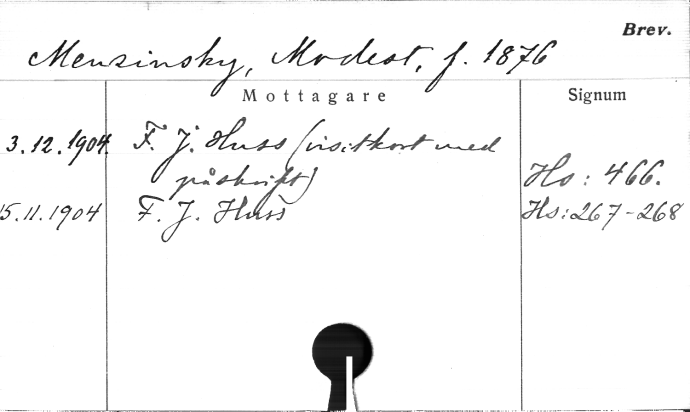 Brev.
Menzinsky, Modest, f. 1876
Mottagare
Signum
3.12.1904. F. J. Huss (visitkort med
påskrift) Hs: 466.
15.11.1904 F. J. Huss Hs: 267-268